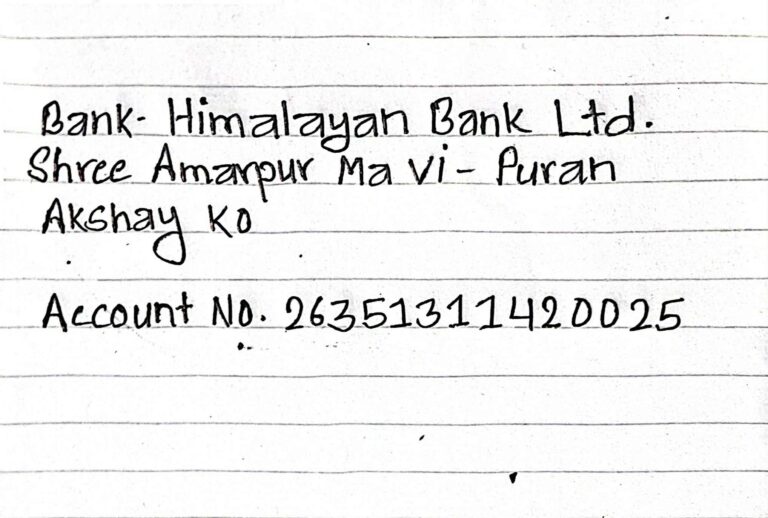 Bank- Himalayan Bank Ltd.
Shree Amarpur Ma Vi - Puran
Akshay Ko
Account No. 26351311420025